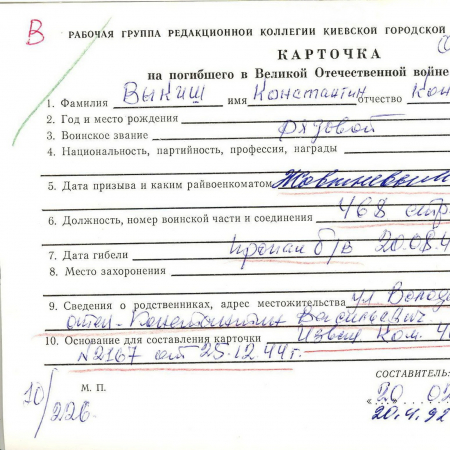 В
РАБОЧАЯ ГРУППА РЕДАКЦИОННОЙ КОЛЛЕГИИ КИЕВСКОЙ ГОРОДСКОЙ
КАРТОЧКА
на погибшего в Великой Отечественной войне
1. Фамилия Выкиш имя Константин отчество Кон
2. Год и место рождения
3. Воинское звание Рядовой
4. Национальность, партийность, профессия, награды
5. Дата призыва и каким райвоенкоматом Жовтневым
6. Должность, номер воинской части и соединения 468 стр
7. Дата гибели пропал б/в 20.08.4
8. Место захоронения
9. Сведения о родственниках, адрес местожительства ул Волод
отец - Константин Васильевич
10. Основание для составления карточки Извещ Ком. 4
№2167 от 25.12.44г.
М. П.
СОСТАВИТЕЛЬ:
10/226
20 02
20.4.92